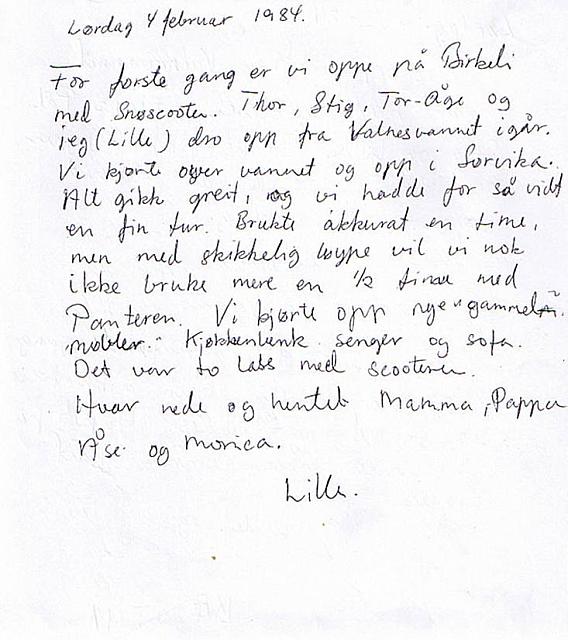 Lørdag 4 februar 1984.
For første gang er vi oppe på Birkeli
med Snøscooter. Thor, Stig, Tor-Åge og
jeg (Lille) dro opp fra Valnesvannet igår.
Vi kjørte over vannet og opp i Sørvika.
Alt gikk greit, og vi hadde for så vidt
en fin tur. Brukte akkurat en time,
men med skikkelig løype vil vi nok
ikke bruke mere en 1/2 time med
Panteren. Vi kjørte opp nye "gammel"
møbler. Kjøkkenbenk senger og sofa.
Det var to lass med scooteren.
Hvar nede og hentet Mamma, Pappa
Åse og Monica.
Lille.